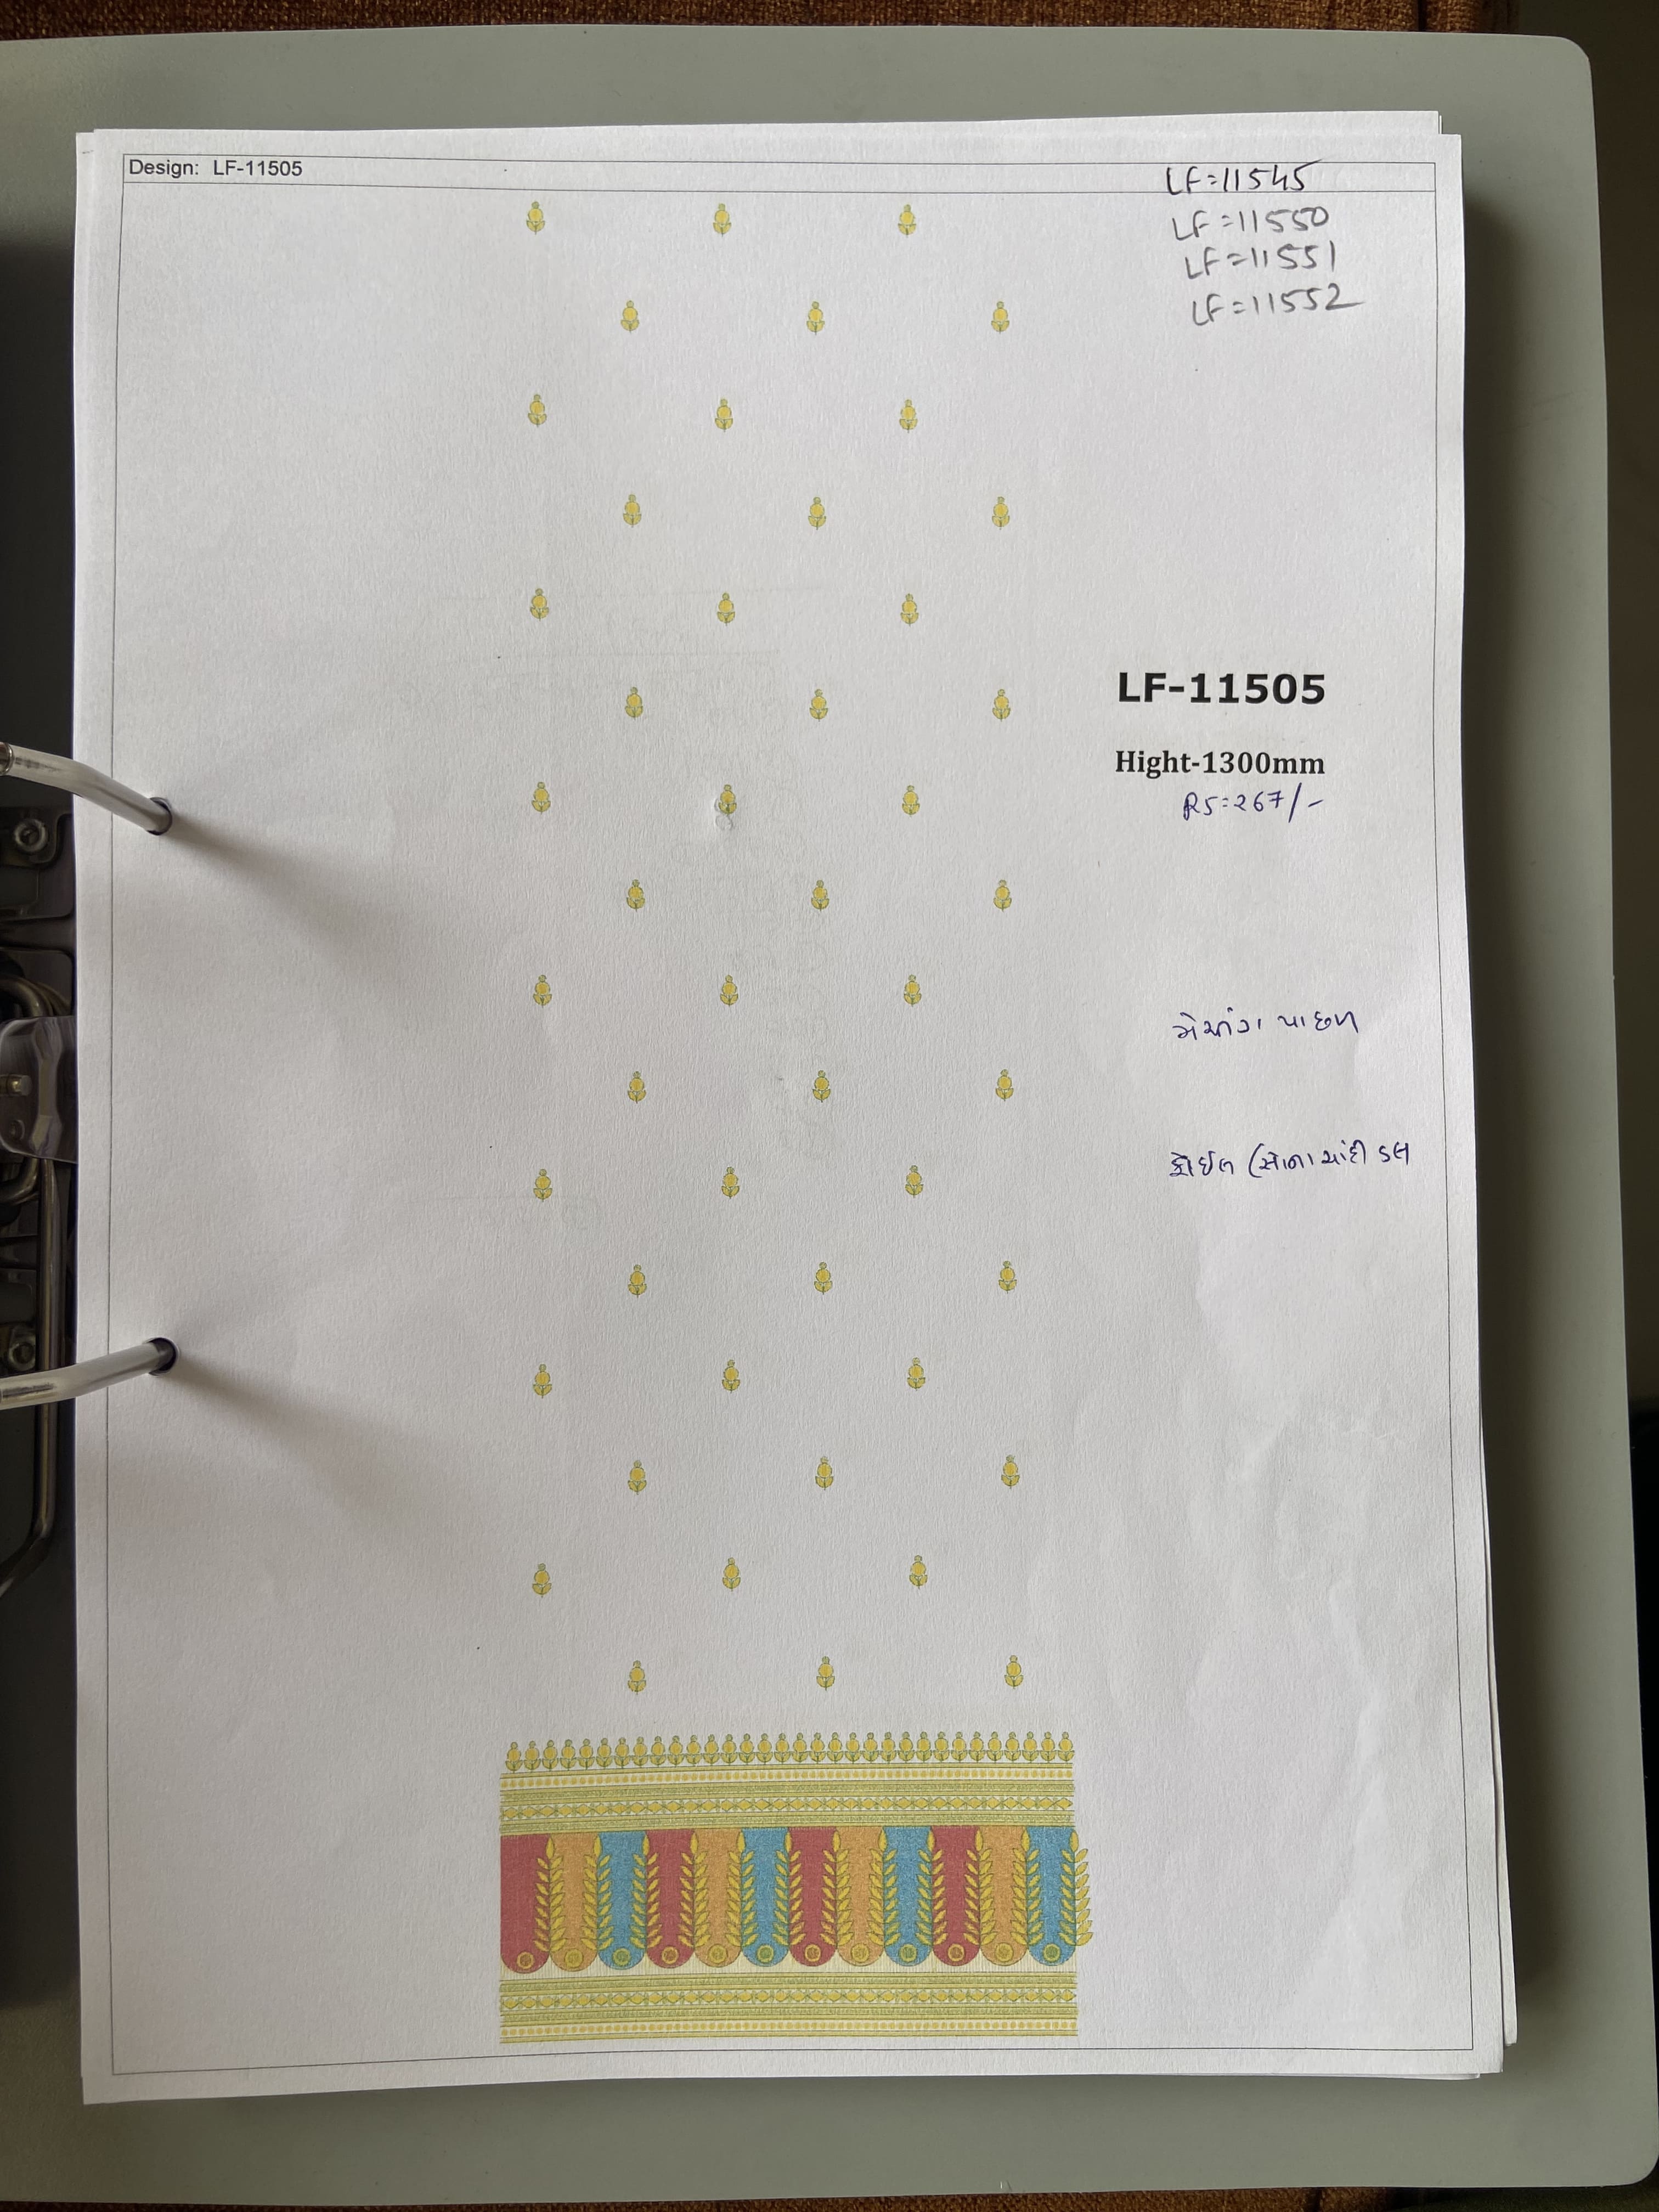 Design: LF-11505
LF=11545
LF=11550
LF=11551
LF=11552
LF-11505
Hight-1300mm
RS=267/-
મેચીંગ પાછળ
ફોઈલ (સોના ચાંદી